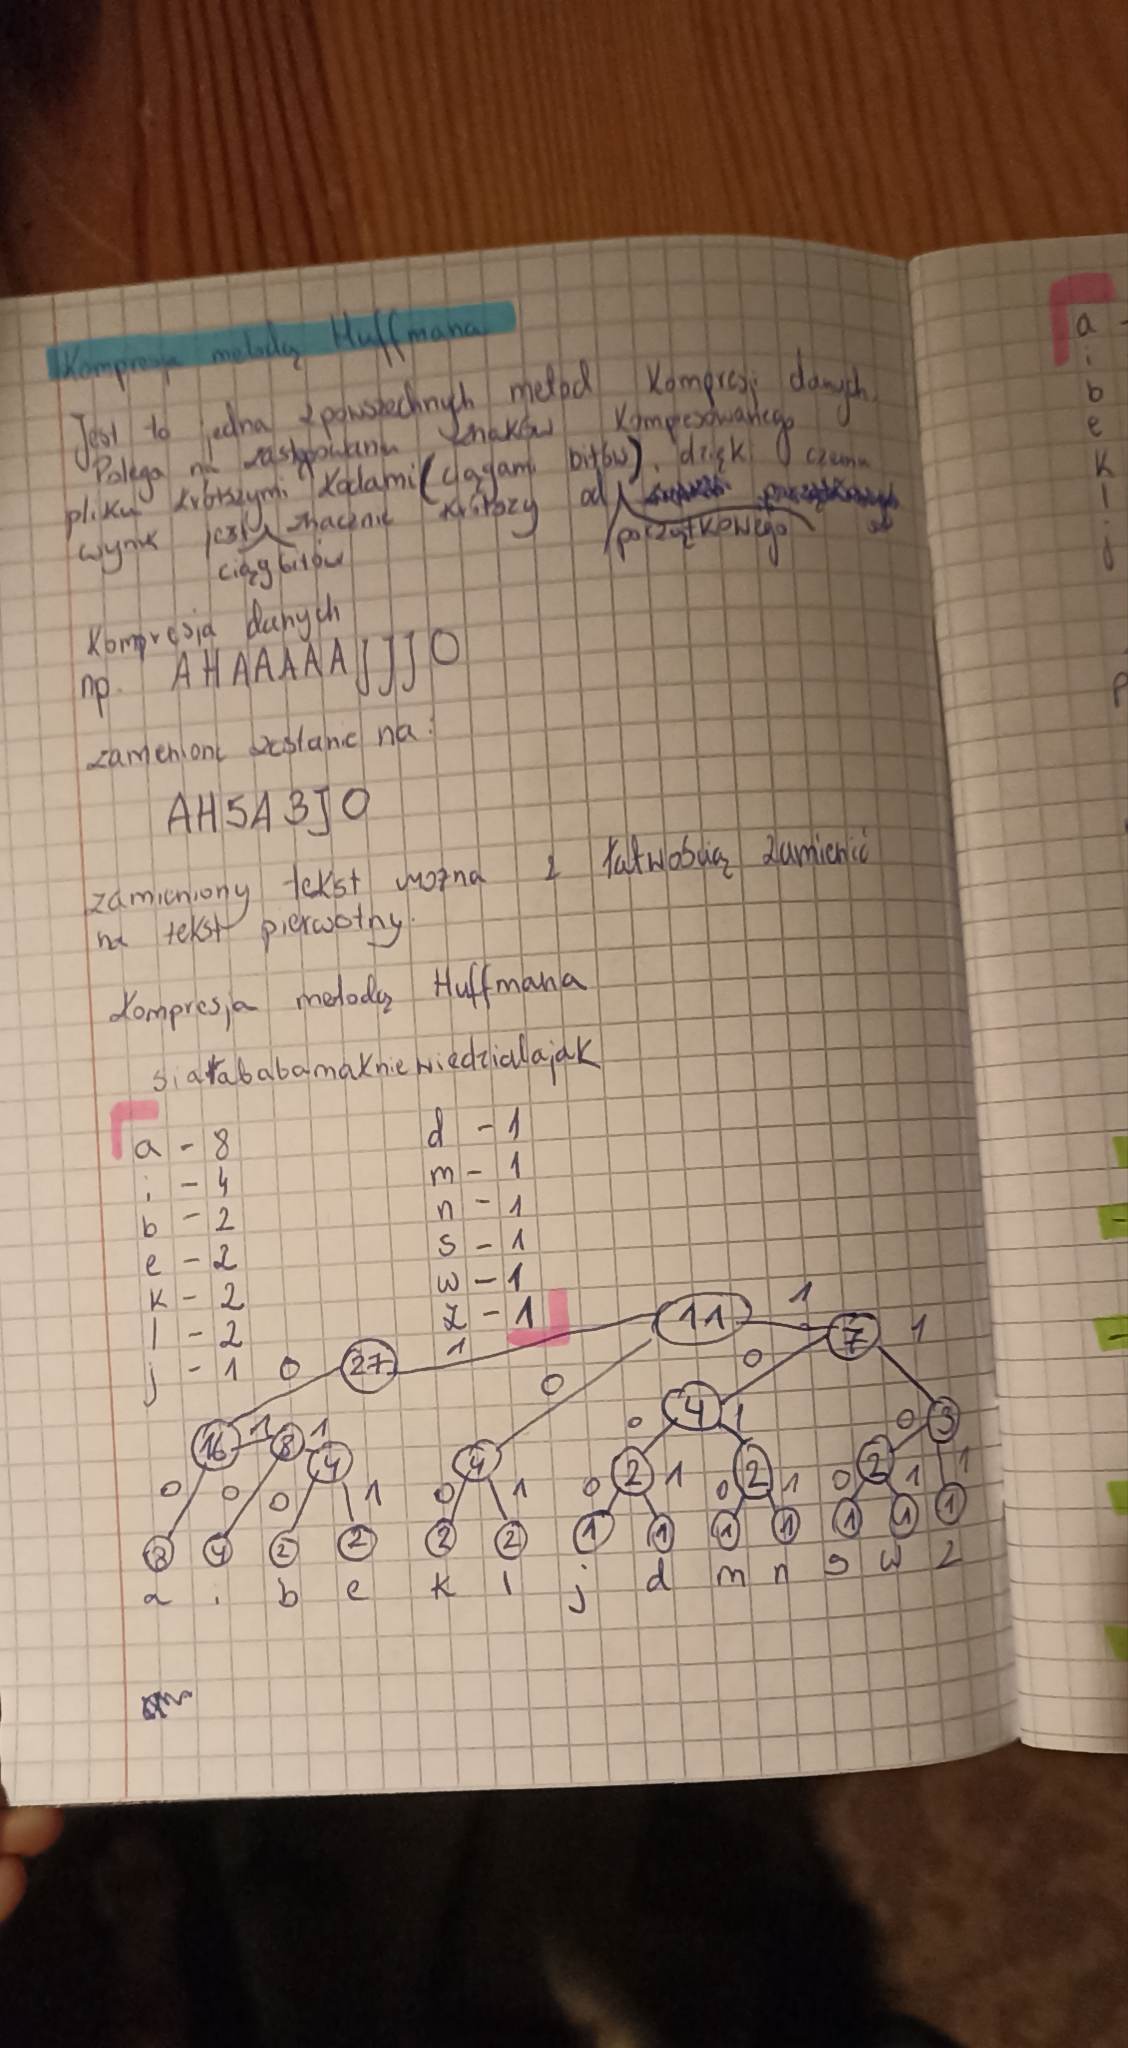 Kompresja metodą Huffmana
Jest to jedna z powszechnych metod kompresji danych.
Polega na zastępowaniu znaków kompresowanego
pliku krótszymi kodami (ciągami bitów), dzięki czemu
wynik jest znacznie krótszy od
ciąg bitów początkowego
Kompresja danych
np. AHAAAAAJJJO
zamenione zostanie na:
AH5A3JO
zamieniony tekst można z łatwością zamienić
na tekst pierwotny.
Kompresja metodą Huffmana
siałababamakniewiedzialajak
a - 8 d - 1
i - 4 m - 1
b - 2 n - 1
e - 2 s - 1
k - 2 w - 1
l - 2 z - 1
j - 1
0 27 1 11 1 7 1
0 0
16 1 8 1 4 4 0 4 1 0 3
0 0 0 1 0 1 0 2 1 0 2 1 0 2 1 1
8 4 2 2 2 2 1 1 1 1 1 1 1
a i b e k l j d m n s w z
a -
i
b
e
k
l
j